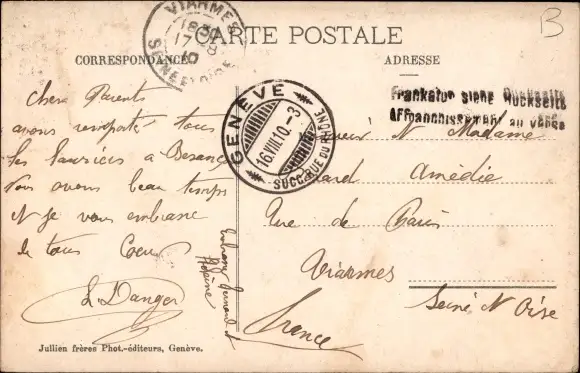 CARTE POSTALE
CORRESPONDANCE
ADRESSE
VIARMES
18 30
17 8
10
SEINE ET OISE
GENÈVE
16.VIII.10.-3
SUCC. RUE DU RHONE
Frankatur siehe Rückseite
Affranchissement au verso
Chers Parents
avons remporté tous
les lauriers à Besançon
Nous avons beau temps
et je vous embrasse
de tout Coeur
L Danger
Monsieur et Madame
Amédie
Rue de Paris
Viarmes
Seine et Oise
France
Jullien frères Phot.-éditeurs, Genève.
B